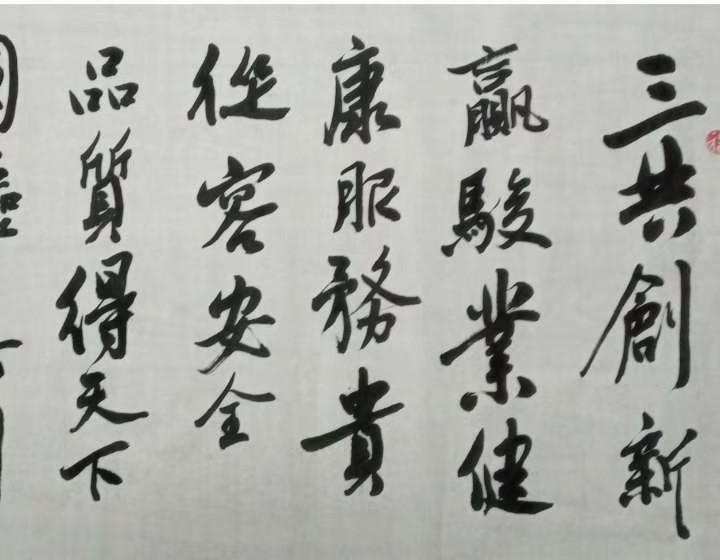 三共創新
贏駿業健
康服務貴
從容安全
品質得天下